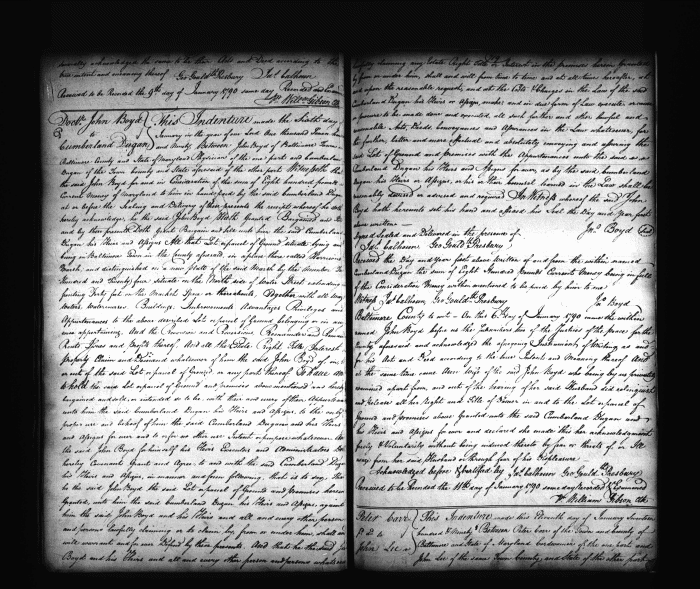 hereby acknowledged the same to be their Act and Deed according to the
true intent and meaning thereof Geo Gould Presbury Jas Calhoun
Received to be Recorded the 9th day of January 1790 same day Recorded and Exd
Wm Gibson Clk
Dockr John Boyd
to
Cumberland Dugan
This Indenture made the Sixth day
January in the year of our Lord One Thousand Seven hundred
and Ninety Between John Boyd of Baltimore Town
Baltimore County and State of Maryland Physician of the one part and Cumberland
Dugan of the Town County and State aforesaid of the other part Witnesseth that
the said John Boyd for and in Consideration of the sum of Eight hundred pounds
Current Money of Maryland to him in hand paid by the said Cumberland Dugan
at or before the Sealing and Delivery of these presents the receipt whereof he doth
hereby acknowledge, he the said John Boyd Hath Granted Bargained and
and by these presents Doth Grant Bargain and Sell unto him the said Cumberland
Dugan his Heirs and Assigns All that Lot of Ground situate lying and
being in Baltimore Town in the County aforesaid in a place there called Harrisons
Marsh and distinguished in a new plat of the said Marsh by the Number
Hundred and Twenty five situate on the North side of Water Street
fronting Forty feet on the Market Space or thereabouts Together with all
Waters Watercourses Buildings Improvements Advantages Privileges and
Appurtenances to the above described Lot or parcel of Ground belonging or in any
wise appertaining And the Reversion and Reversions Remainder and
Rents Issues and Profits thereof And all the Estate Right Title Interest
Property Claim and Demand whatsoever of him the said John Boyd of in
or out of the said Lot or parcel of Ground or any part thereof To have and
to hold the said Lot or parcel of Ground and premises above mentioned and hereby
bargained and sold, or intended so to be, with their and every of their Appurtenances
unto him the said Cumberland Dugan his Heirs and Assigns, to the only
proper use and behoof of him the said Cumberland Dugan and his Heirs
and Assigns for ever and to or for no other use Intent or purpose whatsoever And
the said John Boyd for himself his Heirs Executors and Administrators Doth
hereby Covenant Grant and Agree to and with the said Cumberland Dugan
his Heirs and Assigns, in manner and form following, that is to say, That
he the said John Boyd the said Lot or parcel of Ground and Premises hereon
Granted, unto him the said Cumberland Dugan his Heirs and Assigns, against
him the said John Boyd and his Heirs and all and every other person
and persons lawfully claiming or to claim, by, from or under him, shall and
will warrant and for ever Defend by these presents. And that he the said John
Boyd and his Heirs and all and every other person and persons whatsoever
lawfully claiming any Estate Right Title or Interest in the premises herein Granted
by from or under him, shall and will from time to time and at all times hereafter, at
and upon the reasonable request, and at the Costs & Charges in the Law of the said
Cumberland Dugan his Heirs or Assigns make and in due form of Law execute or cause
or procure to be made done and executed all such further and other lawful and
reasonable Acts, Deeds, Conveyances and Assurances in the Law whatsoever, for
the further, better and more perfect and absolutely conveying and assuring this
said Lot of Ground and premises with the Appurtenances unto the said
Cumberland Dugan his Heirs and Assigns for ever, as by the said Cumberland
Dugan his Heirs or Assigns, or his or their Counsel learned in the Law shall be
reasonably devised or advised and required In Witness whereof the said John
Boyd hath hereunto set his hand and affixed his Seal the Day and Year first
above written
Jno Boyd Seal
Signed Sealed and Delivered in the presence of
Jas Calhoun Geo Gould Presbury
Received the Day and Year first above Written of and from the within named
Cumberland Dugan the sum of Eight Hundred Pounds Current Money being in full
of the Consideration Money within mentioned to be paid by him to me
Witness Jas Calhoun Geo Gould Presbury
Jno Boyd
Baltimore County to wit On this 6th Day of January 1790 came the within
named John Boyd before us the Subscribers two of the Justices of the peace for the
County aforesaid and acknowledged the aforegoing Instrument of Writing as and
for his Act and Deed according to the true Intent and Meaning thereof And
at the same time came Ann Wife of the said John Boyd who being by us privately
examined apart from, and out of the hearing of her said Husband did relinquish
and release all her right and Title of Dower in and to the Lot or parcel of
Ground and premises above Granted unto the said Cumberland Dugan and
his Heirs and Assigns for ever and declared she made this her acknowledgement
freely & Voluntarily without being induced thereto by fear or threats of, or Ill
usage from her said Husband or through fear of his Displeasure
Acknowledged before & certified by Jas Calhoun Geo Gould Presbury
Received to be Recorded the 11th day of January 1790 same day Recorded & Examined
Pr William Gibson Clk
Peter Carr
Dd to
John Lee
This Indenture made this Eleventh day of January Seventeen
hundred & Ninety Between Peter Carr of the Town and County of
Baltimore and State of Maryland Cordwainer of the one part and
John Lee of the same Town County and State of the other part